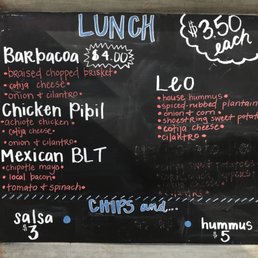 LUNCH
$3.50
each
Barbacoa $4.00
• braised chopped brisket
• cotija cheese
• onion & cilantro
Chicken Pibil
• achiote chicken
• cotija cheese
• onion & cilantro
Mexican BLT
• chipotle mayo
• local bacon
• tomato & spinach
Leo
• house hummus
• spiced-rubbed plantain
• onion & corn
• shoestring sweet potato
• cotija cheese
• cilantro
CHIPS and...
salsa
$3
hummus
$5